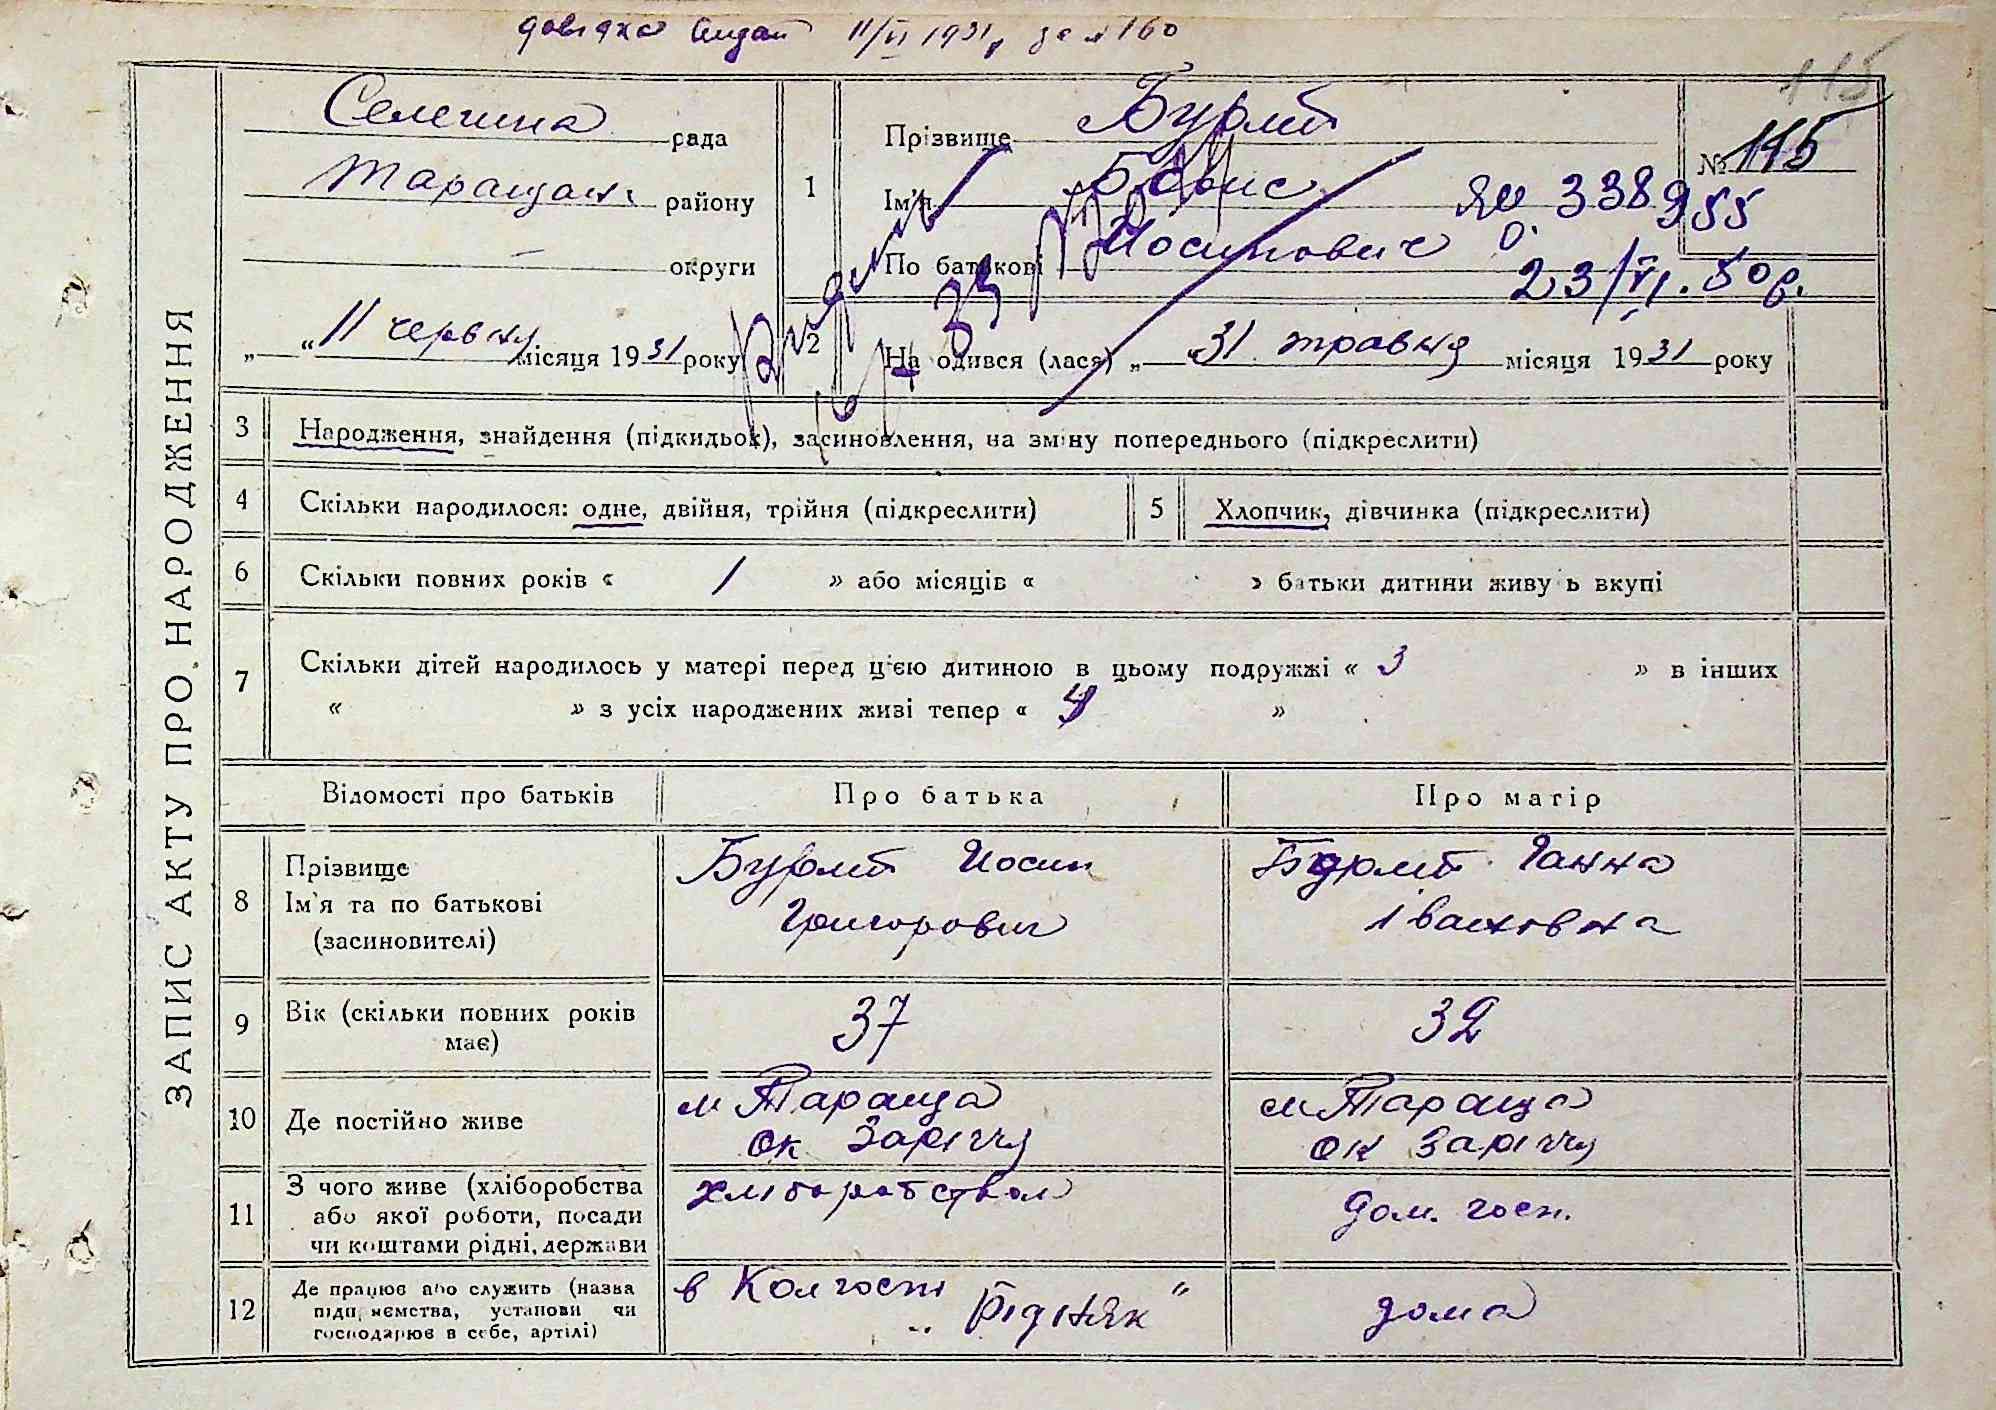 довідка видан 11/VI 1931 р за № 160
115
ЗАПИС АКТУ ПРО НАРОДЖЕННЯ
Селещна рада
Таращан. району
округи
„ “ 11 червня місяця 1931 року
1
Прізвище Бурлт
Ім'я Борис
По батькові Йосипович
№ 115
ЯЮ 338955
23/VI. 50 р.
2
Народився (лася) „ 31 травня місяця 1931 року
3 Народження, знайдення (підкидьок), засиновлення, на зміну попереднього (підкреслити)
4 Скільки народилося: одне, двійня, трійня (підкреслити)
5 Хлопчик, дівчинка (підкреслити)
6 Скільки повних років « 1 » або місяців « » батьки дитини живуть вкупі
7 Скільки дітей народилось у матері перед цією дитиною в цьому подружжі « 3 » в інших
« » з усіх народжених живі тепер « 4 »
Відомості про батьків Про батька Про матір
8 Прізвище Ім'я та по батькові (засиновителі)
Бурлт Йосип
Григорович
Бурлт Ганна
Івановна
9 Вік (скільки повних років має) 37 32
10 Де постійно живе
м Тараща
ок Заріччя
м Тараща
ок Заріччя
11 З чого живе (хліборобства
або якої роботи, посади
чи коштами рідні, держави
хліборобством
дом. госп.
12 Де працює або служить (назва
підприємства, установи чи
господарює в себе, артілі)
в Колгоспі
„ Рідняк “
дома